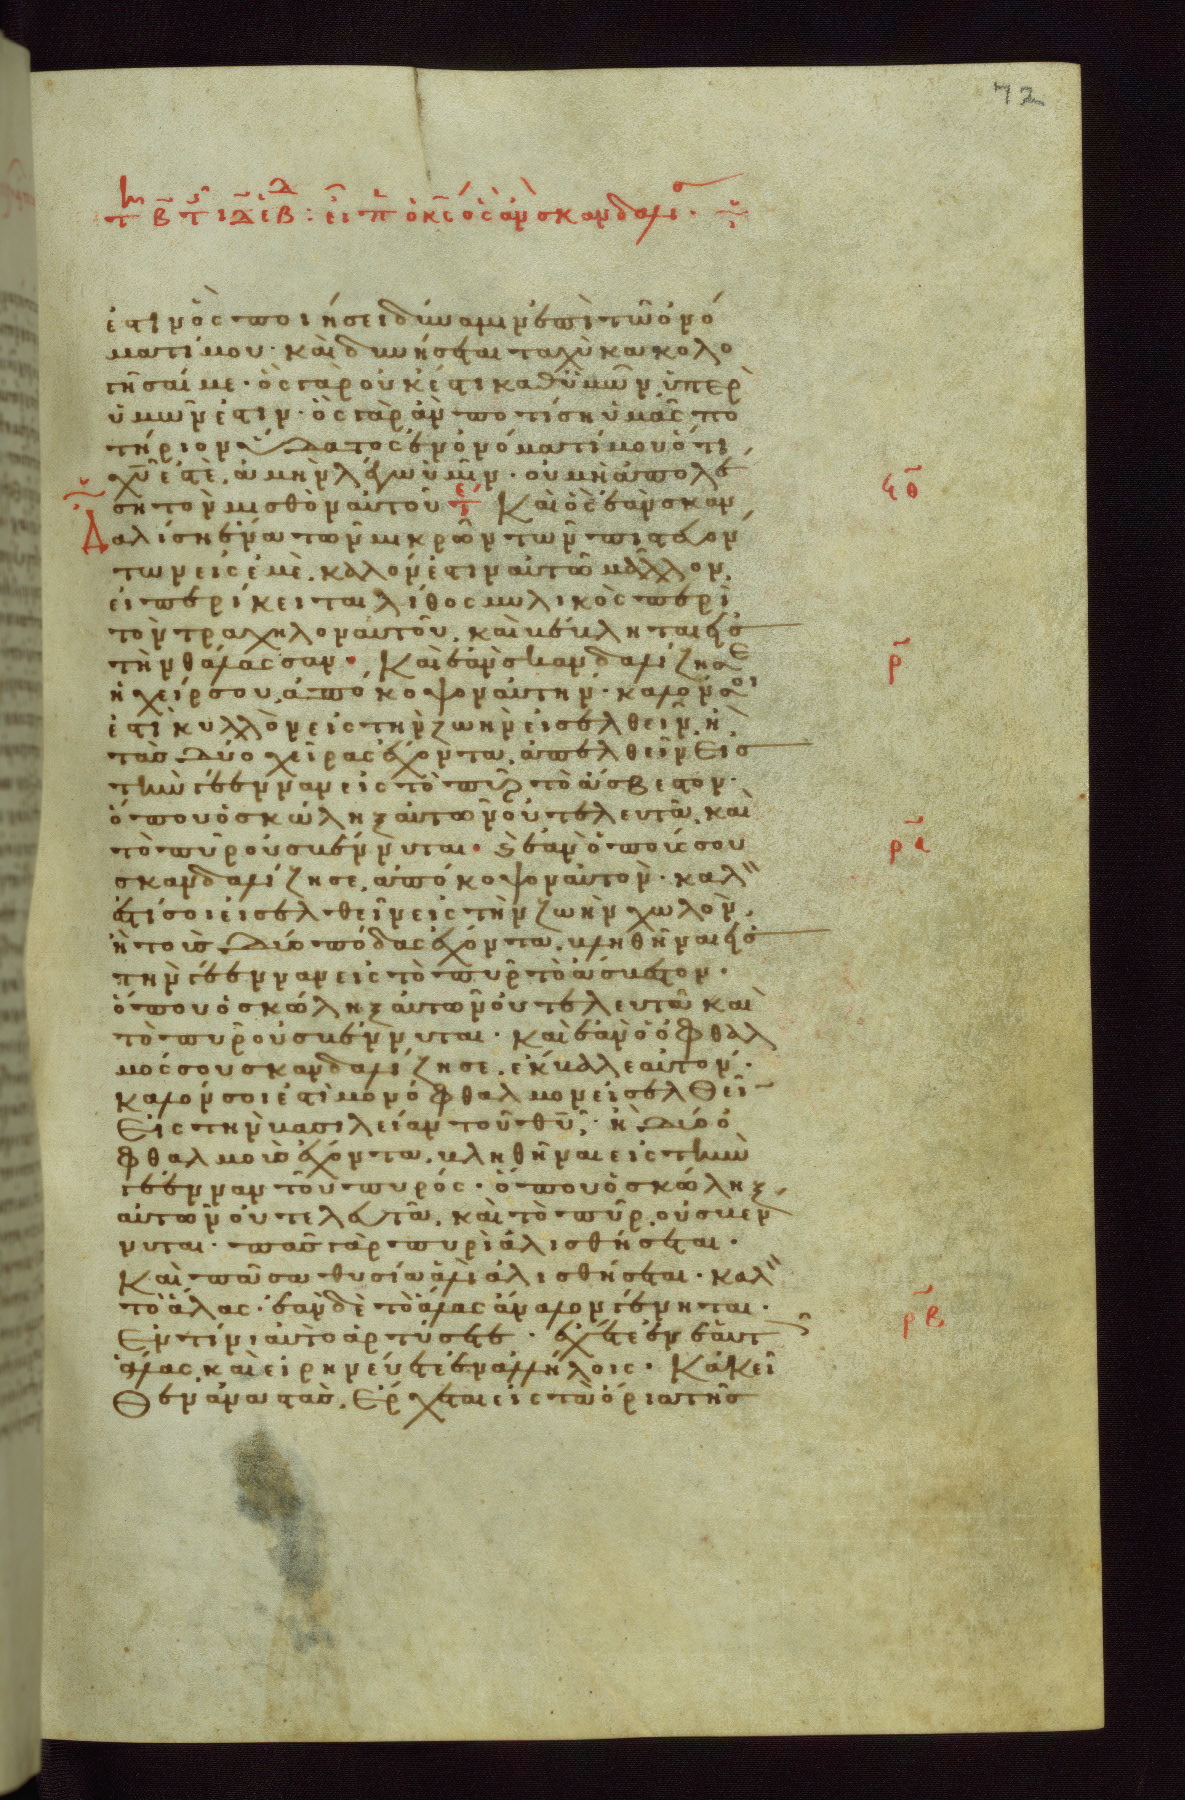 72
τῇ β̅ τ ιδ ἑβ : εἶπ ὁ κ̅ς ὃς ἂν σκανδαλι
ἐστιν ὃς ποιήσει δύναμιν ἐπὶ τῶ ὀνό
ματί μου· καὶ δυνήσεται ταχὺ κακολο
γῆσαί με· ὃς γὰρ οὐκ ἔστι καθ ὑμῶν, ὑπὲρ
ὑμῶν ἐστιν· ὃς γὰρ ἂν ποτίση ὑμᾶς πο
τήριον ὕδατος ἐν ὀνόματί μου ὅτι
χ̅υ ἐστὲ, ἀμὴν λέγω ὑμῖν· οὐ μὴ ἀπολέ
ση τὸν μισθὸν αὐτοῦ Καὶ ὃς ἐὰν σκαν
ϟθ
δαλίση ἕνα τῶν μικρῶν τῶν πιστευόν
των εἰς ἐμὲ, καλόν ἐστιν αὐτῶ μᾶλλον,
εἰ περίκειται λίθος μυλικὸς περὶ
τὸν τράχηλον αὐτοῦ, καὶ βέβληται εἰς
τὴν θάλασσαν· Καὶ ἐὰν σκανδαλίζη σε
ρ
ἡ χείρ σου, ἀπόκοψον αὐτήν· καλόν σοι
ἐστὶ κυλλὸν εἰς τὴν ζωὴν εἰσελθεῖν, ἢ
τὰς δύο χεῖρας ἔχοντα, ἀπελθεῖν εἰς
τὴν γέενναν εἰς τὸ πῦρ τὸ ἄσβεστον·
ὅπου ὁ σκώληξ αὐτῶν οὐ τελευτᾶ, καὶ
τὸ πῦρ οὐ σβέννυται· ϗ ἐὰν ὁ πούς σου
ρα
σκανδαλίζη σε, ἀπόκοψον αὐτόν· καλ
ἐστί σοι εἰσελθεῖν εἰς τὴν ζωὴν χωλὸν,
ἢ τοὺς δύο πόδας ἔχοντα, βληθῆναι εἰς
τὴν γέενναν εἰς τὸ πῦρ τὸ ἄσβεστον·
ὅπου ὁ σκώληξ αὐτῶν οὐ τελευτᾶ καὶ
τὸ πῦρ οὐ σβέννυται· καὶ ἐὰν ὁ ὀφθαλ
μός σου σκανδαλίζη σε, ἔκβαλε αὐτόν·
καλόν σοι ἐστὶ μονόφθαλμον εἰσελθεῖ
εἰς τὴν βασιλείαν τοῦ θ̅υ, ἢ δύο ὀ
φθαλμοὺς ἔχοντα, βληθῆναι εἰς τὴν
γέενναν τοῦ πυρός· ὅπου ὁ σκώληξ
αὐτῶν οὐ τελευτᾶ, καὶ τὸ πῦρ, οὐ σβέν
νυται· πᾶς γὰρ πυρὶ ἁλισθήσεται·
καὶ πᾶσα θυσία ἁλὶ ἁλισθήσεται· καλ
τὸ ἅλας· ἐὰν δὲ τὸ ἅλας ἄναλον γένηται·
ρβ
ἐν τίνι αὐτὸ ἀρτύσετε· ἔχετε ἐν ἑαυτ
ἅλας, καὶ εἰρηνεύετε ἐν ἀλλήλοις· Κἀκεῖ
θεν ἀναστὰς, ἔρχεται εἰς τὰ ὅρια τῆς